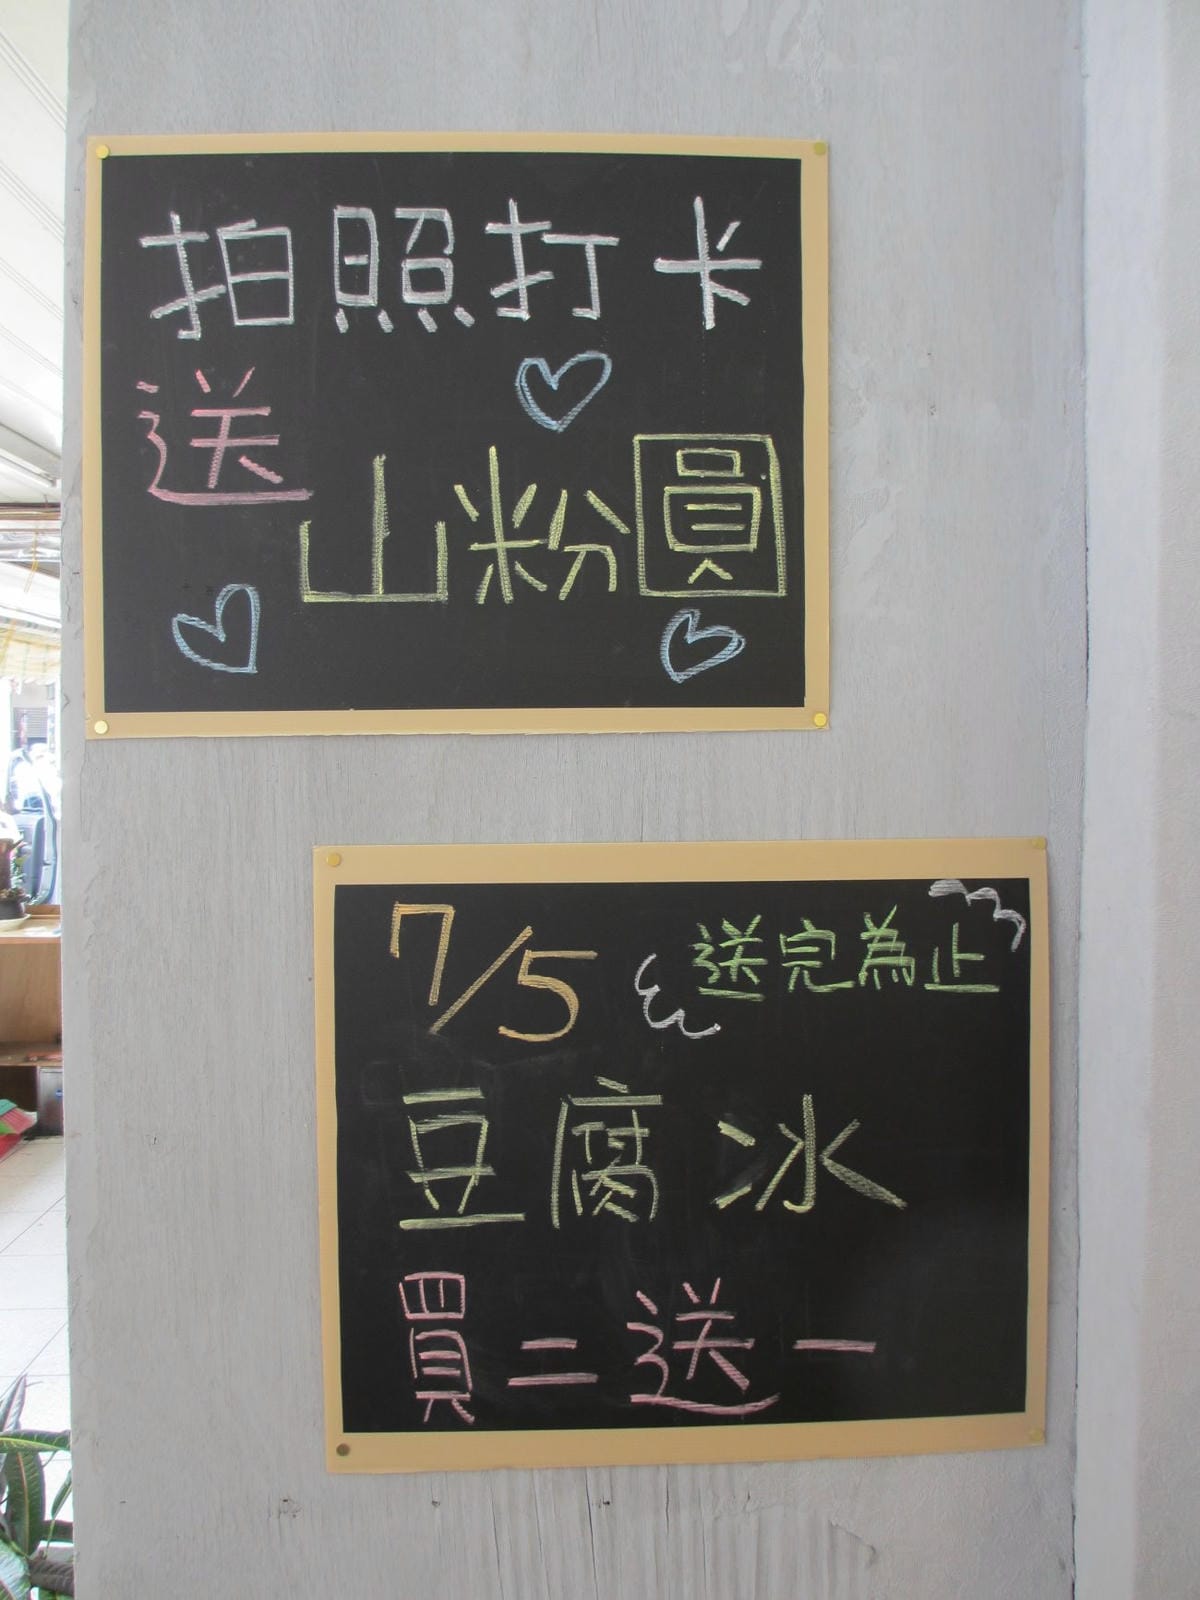 拍照打卡
送
山粉圓
7/5
送完為止
豆腐冰
買二送一